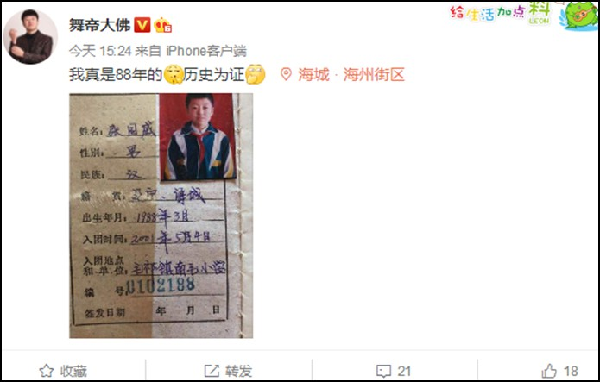 舞帝大佛
给生活加点料
今天 15:24 来自 iPhone客户端
我真是88年的 历史为证 海城·海州街区
姓名:
性别: 男
民族: 汉
籍 贯: 辽宁 海城
出生年月: 1988年3月
入团时间: 2001年5月4日
入团地点
和单位: 小学
编 号: 0102188
签发日期 年 月 日
收藏
转发
21
18